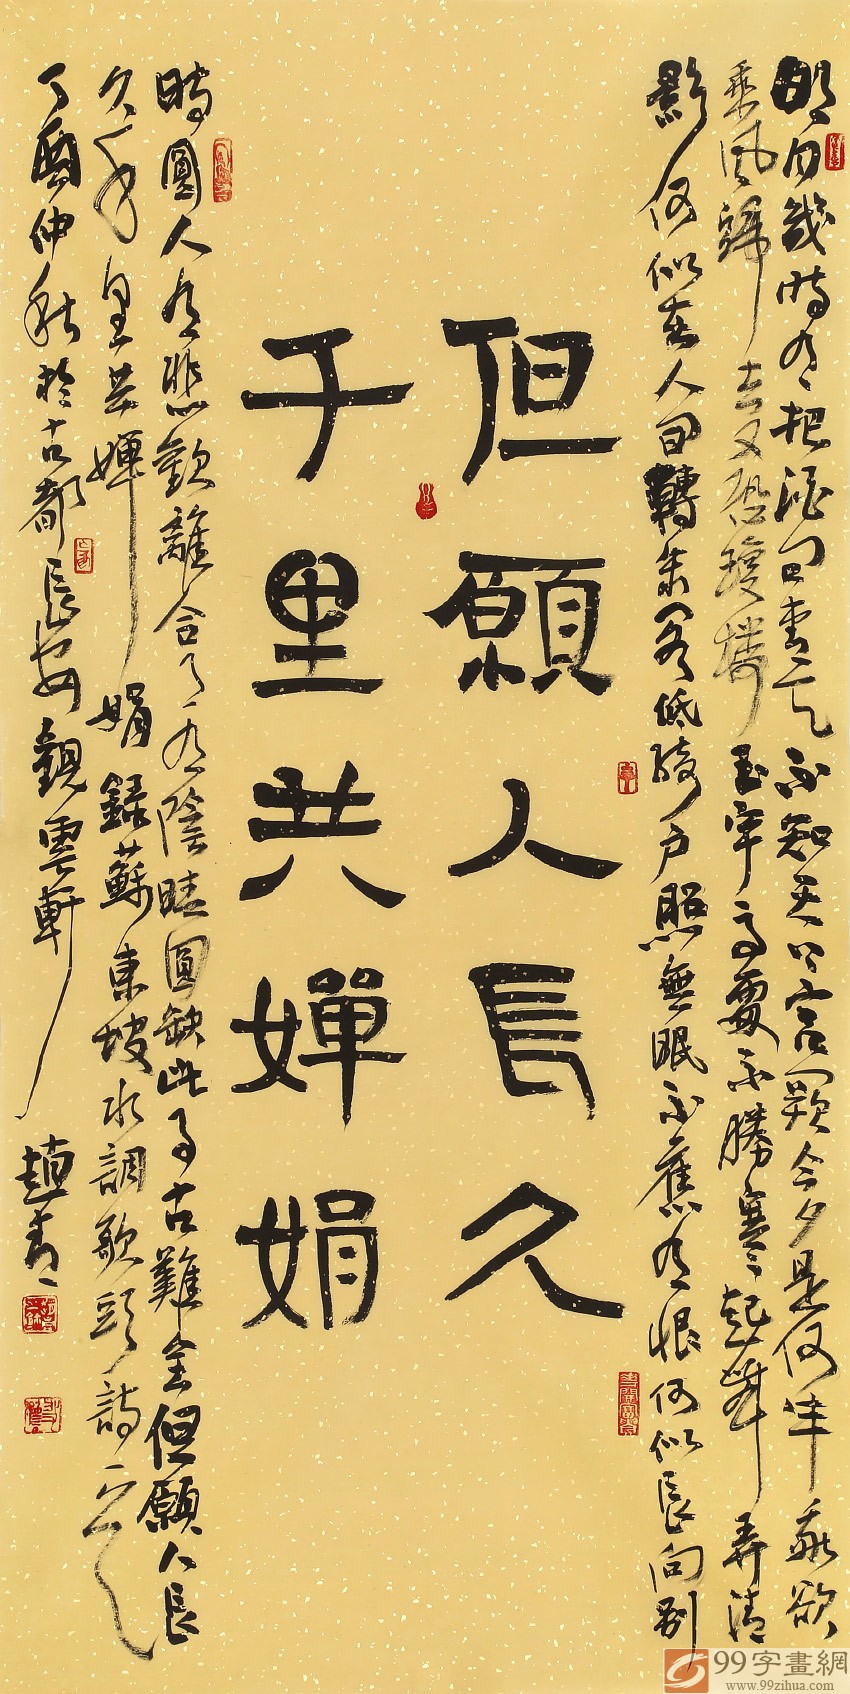 明月幾時有把酒問青天不知天上宮闕今夕是何年我欲
乘風歸去又恐瓊樓玉宇高處不勝寒起舞弄清
影何似在人間轉朱閣低綺戶照無眠不應有恨何似長向別
但願人長久
千里共嬋娟
時圓人有悲歡離合月有陰晴圓缺此事古難全但願人長
久千里共嬋娟錄蘇東坡水調歌頭詩
丁酉仲秋於古都長安觀雲軒 趙青
99字畫網
www.99zihua.com